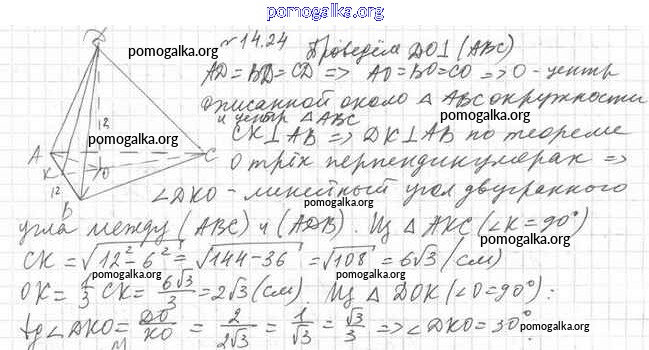 pomogalka.org
№ 14.24 Проведём DO⊥(ABC)
pomogalka.org
AD=BD=CD => AO=BO=CO => O - центр
описанной около △ ABC окружности
и центр △ ABC
pomogalka.org
pomogalka.org
CK⊥AB => DK⊥AB по теореме
о трёх перпендикулярах =>
pomogalka.org
∠DKO - линейный угол двугранного
угла между (ABC) и (ADB). Из △ AKC (∠K=90°)
pomogalka.org
CK = √12²-6² = √144-36 = √108 = 6√3 (см)
pomogalka.org
pomogalka.org
OK = 1/3 CK = 6√3/3 = 2√3 (см). Из △ DOK (∠O=90°):
tg∠DKO = DO/KO = 2/2√3 = 1/√3 = √3/3 => ∠DKO=30°
pomogalka.org
pomogalka.org
D
A
C
K
O
B
12
12